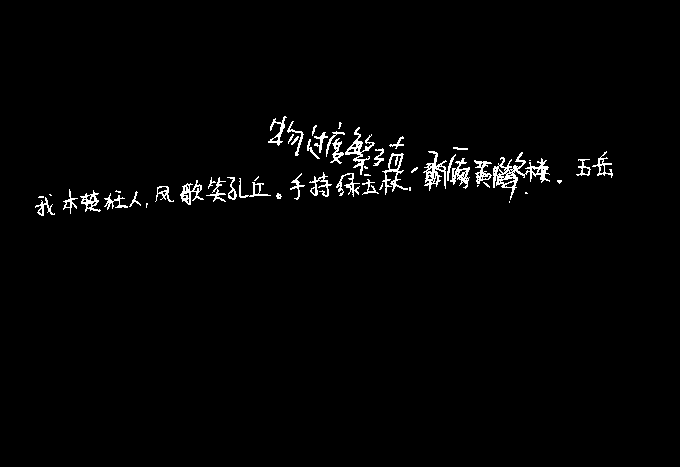 物过度繁殖,
我本楚狂人,凤歌笑孔丘。手持绿玉杖,朝别黄鹤楼。五岳